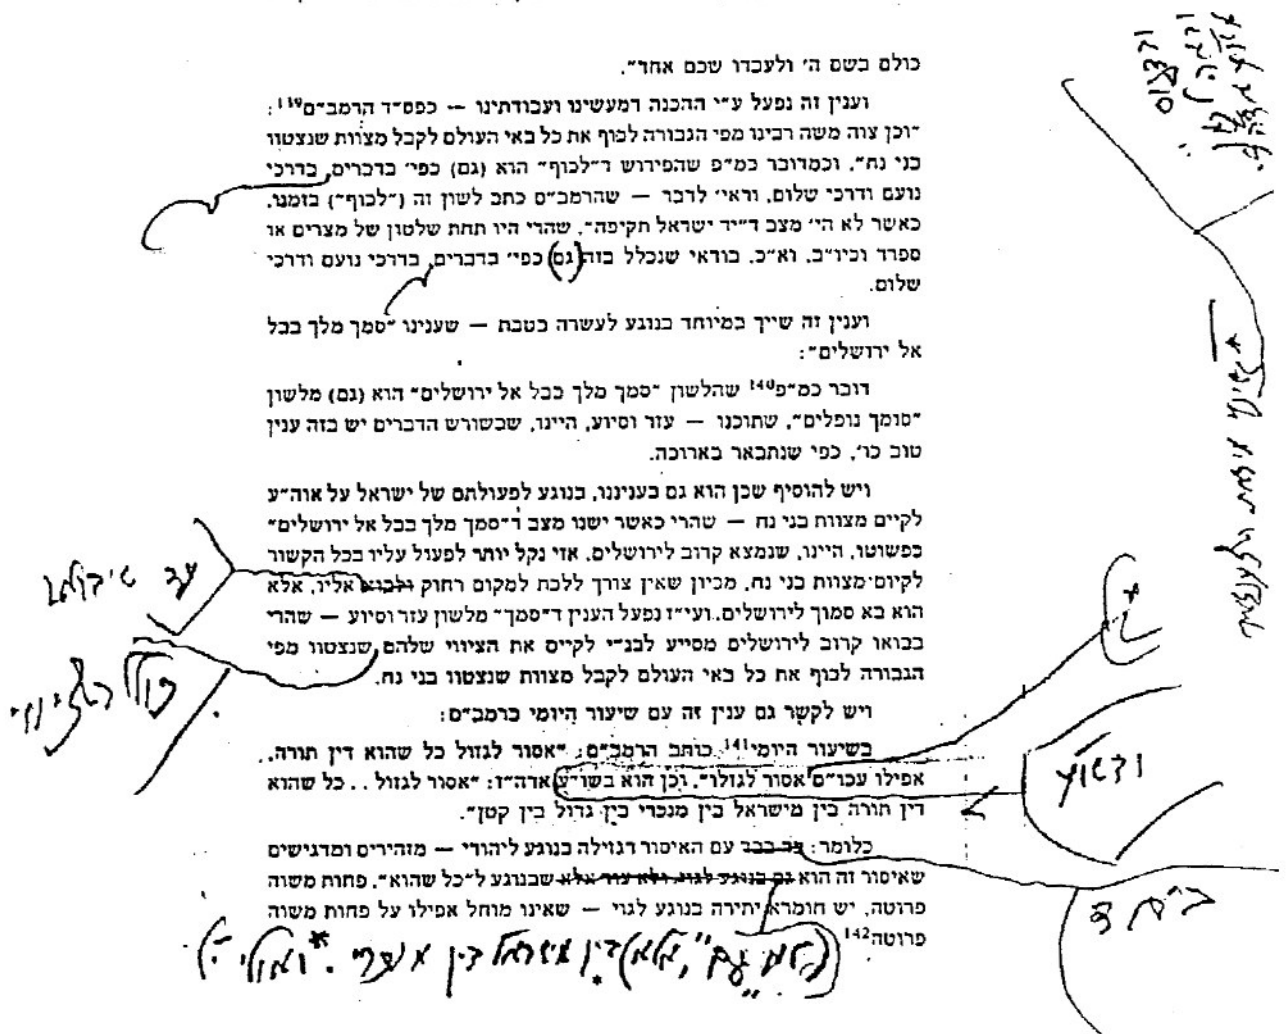 כולם בשם ה׳ ולעבדו שכם אחד״.
וענין זה נפעל ע״י ההכנה דמעשינו ועבודתינו — כפס״ד הרמב״ם139:
״וכן צוה משה רבינו מפי הגבורה לכוף את כל באי העולם לקבל מצוות שנצטוו
בני נח״. וכמדובר כמ״פ שהפירוש ד״לכוף״ הוא (גם) כפי׳ בדברים, בדרכי
נועם ודרכי שלום, וראי׳ לדבר — שהרמב״ם כתב לשון זה (״לכוף״) בזמנו,
כאשר לא הי׳ מצב ד״יד ישראל תקיפה״, שהרי היו תחת שלטון של מצרים או
ספרד וכיו״ב, וא״כ, בודאי שנכלל בזה (גם) כפי׳ בדברים, בדרכי נועם ודרכי
שלום.
וענין זה שייך במיוחד בנוגע לעשרה בטבת — שענינו ״סמך מלך בבל
אל ירושלים״:
דובר כמ״פ140 שהלשון ״סמך מלך בבל אל ירושלים״ הוא (גם) מלשון
״סומך נופלים״, שתוכנו — עזר וסיוע, היינו, שבשורש הדברים יש בזה ענין
טוב כו׳, כפי שנתבאר בארוכה.
ויש להוסיף שכן הוא גם בעניננו, בנוגע לפעולתם של ישראל על אוה״ע
לקיים מצוות בני נח — שהרי כאשר ישנו מצב ד״סמך מלך בבל אל ירושלים״
כפשוטו, היינו, שנמצא קרוב לירושלים, אזי נקל יותר לפעול עליו בכל הקשור
לקיום מצוות בני נח, מכיון שאין צורך ללכת למקום רחוק ולבוא אליו, אלא
הוא בא סמוך לירושלים. ועי״ז נפעל הענין ד״סמך״ מלשון עזר וסיוע — שהרי
בבואו קרוב לירושלים מסייע לבנ״י לקיים את הציווי שלהם, שנצטוו מפי
הגבורה לכוף את כל באי העולם לקבל מצוות שנצטוו בני נח.
ויש לקשר גם ענין זה עם שיעור היומי ברמב״ם:
בשיעור היומי141 כותב הרמב״ם: ״אסור לגזול כל שהוא דין תורה..
אפילו עכו״ם אסור לגזלו״. וכן הוא בשו״ע אדה״ז: ״אסור לגזול .. כל שהוא
דין תורה בין מישראל בין מנכרי בין גדול בין קטן״.
כלומר: עד בבד עם האיסור דגזילה בנוגע ליהודי — מזהירים ומדגישים
שאיסור זה הוא גם בנוגע לגוי. ולא עוד אלא שבנוגע ל״כל שהוא״, פחות משוה
פרוטה, יש חומרא יתירה בנוגע לגוי — שאינו מוחל אפילו על פחות משוה
פרוטה142